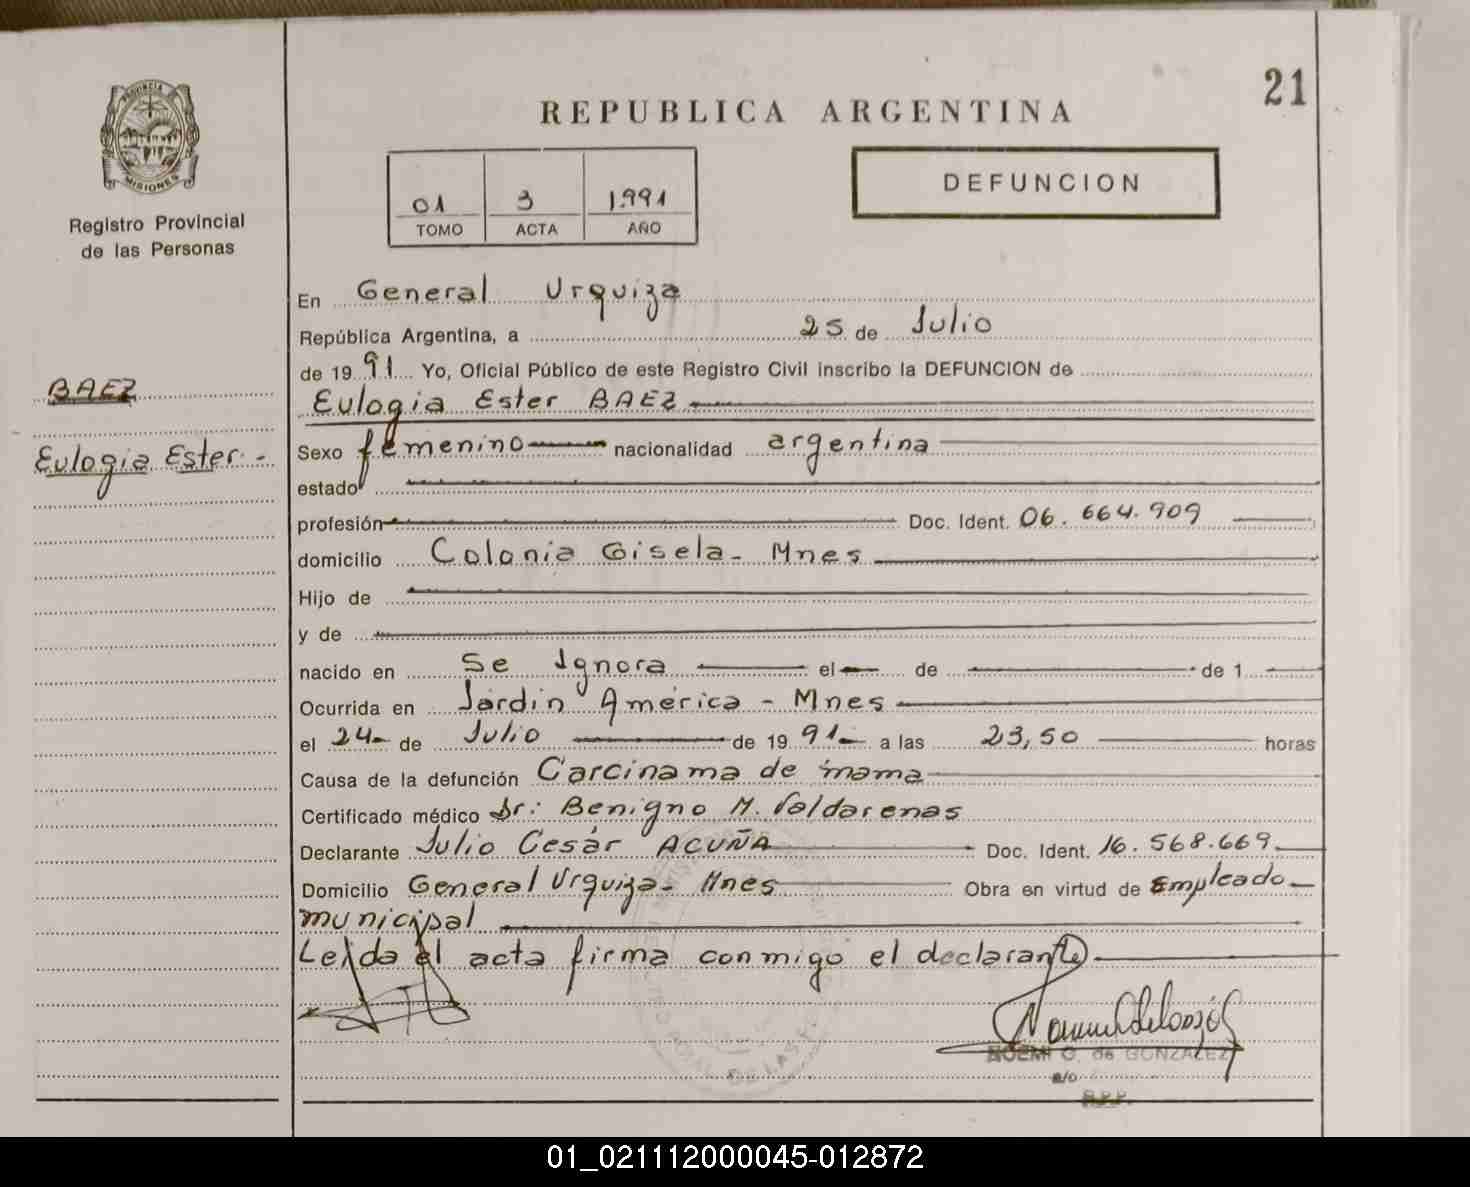 21
PROVINCIA
MISIONES
Registro Provincial
de las Personas
REPUBLICA ARGENTINA
DEFUNCION
01 3 1991
TOMO ACTA AÑO
BAEZ
Eulogia Ester.-
En General Urquiza
República Argentina, a 25 de Julio
de 1991 Yo, Oficial Público de este Registro Civil inscribo la DEFUNCION de
Eulogia Ester BAEZ
Sexo femenino nacionalidad argentina
estado
profesión Doc. Ident. 06.664.909
domicilio Colonia Gisela- Mnes
Hijo de
y de
nacido en Se Ignora el de de 1
Ocurrida en Jardin América - Mnes
el 24 de Julio de 1991 a las 23,50 horas
Causa de la defunción Carcinama de mama
Certificado médico Dr: Benigno M. Valdarenas
Declarante Julio Cesár ACUÑA Doc. Ident. 16.568.669
Domicilio General Urquiza- Mnes Obra en virtud de Empleado
municipal
Leida el acta firma conmigo el declarante
NOEMI G. de GONZALEZ
a/c
R.P.P.
01_021112000045-012872